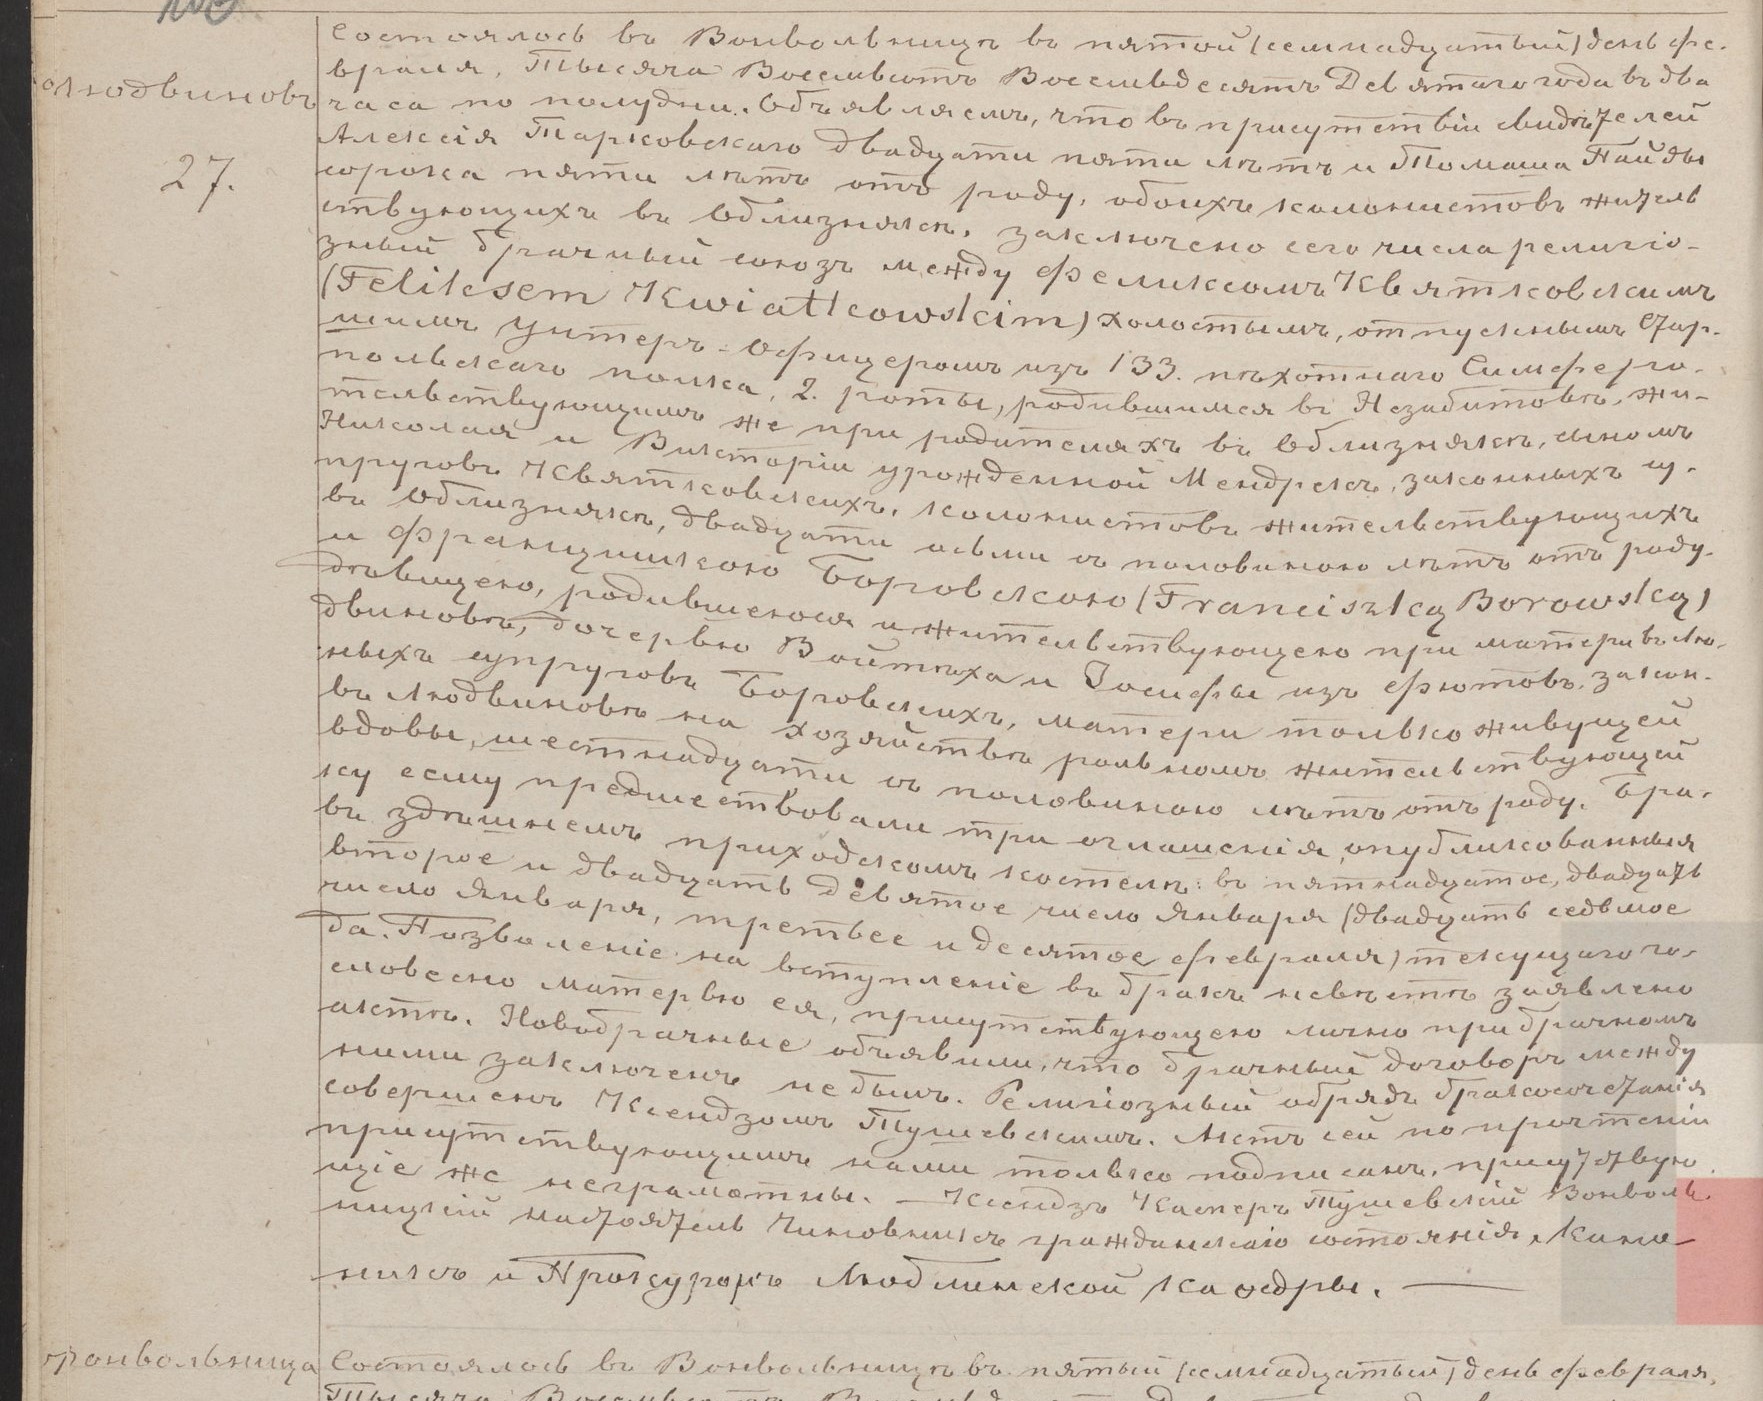 Состоялось въ Вонвольницѣ въ пятой (семнадцатый) день фе-
враля, Тысяча Восемьсотъ Восемьдесятъ Девятаго года въ два
Людвиновъ
часа по полудни. Объявляемъ, что въ присутствіи свидѣтелей
27.
Алексія Тарковскаго двадцати пяти лѣтъ и Томаша Пайды
сорока пяти лѣтъ отъ роду, обоихъ колонистовъ житель
ствующихъ въ Облизнякѣ, заключено сего числа религіо-
зный брачный союзъ между Феликсомъ Квятковскимъ
(Feliksem Kwiatkowskim) холостымъ, отпускнымъ Стар-
шимъ Унтеръ-Офицеромъ изъ 133. пѣхотнаго Симферо-
польскаго полка, 2. роты, родившимся въ Незабитовѣ, жи-
тельствующимъ же при родителяхъ въ Облизнякѣ, сыномъ
Николая и Викторіи урожденной Мендрекъ, законныхъ су-
пруговъ Квятковскихъ, колонистовъ жительствующихъ
въ Облизнякѣ, двадцати осьми съ половиною лѣтъ отъ роду.
и Францишкою Боровскою (Franciszką Borowską)
дѣвицею, родившеюся и жительствующею при матери въ Лю-
двиновѣ, дочерью Войтѣха и Іосифы изъ Фютовъ, закон-
ныхъ супруговъ Боровскихъ, матери только живущей
въ Людвиновѣ на хозяйствѣ рольномъ жительствующей
вдовы, шестнадцати съ половиною лѣтъ отъ роду. Бра-
ку сему предшествовали три оглашенія, опубликованныя
въ здѣшнемъ приходскомъ костелѣ: въ пятнадцатое, двадцать
второе и двадцать девятое число Января (двадцать седьмое
число Января, третьее и десятое Февраля) текущаго го-
да. Позволеніе на вступленіе въ бракъ невѣстѣ заявлено
словесно матерью ея, присутствующею лично при брачномъ
актѣ. Новобрачные объявили, что брачный договоръ между
ними заключенъ не былъ. Религіозный обрядъ бракосочетанія
совершенъ Ксендзомъ Тушевскимъ. Актъ сей по прочтеніи
присутствующимъ нами только подписанъ, присутствую
щіе же неграмотны. — Ксендзъ Касперъ Тушевскій Вонволь-
ницкій настоятель Чиновникъ гражданскаго состоянія, Кано
никъ и Прокуроръ Люблинской Каѳедры. —
Вонвольница
Состоялось въ Вонвольницѣ въ пятый (семнадцатый) день февраля,
Тысяча Восемьсотъ